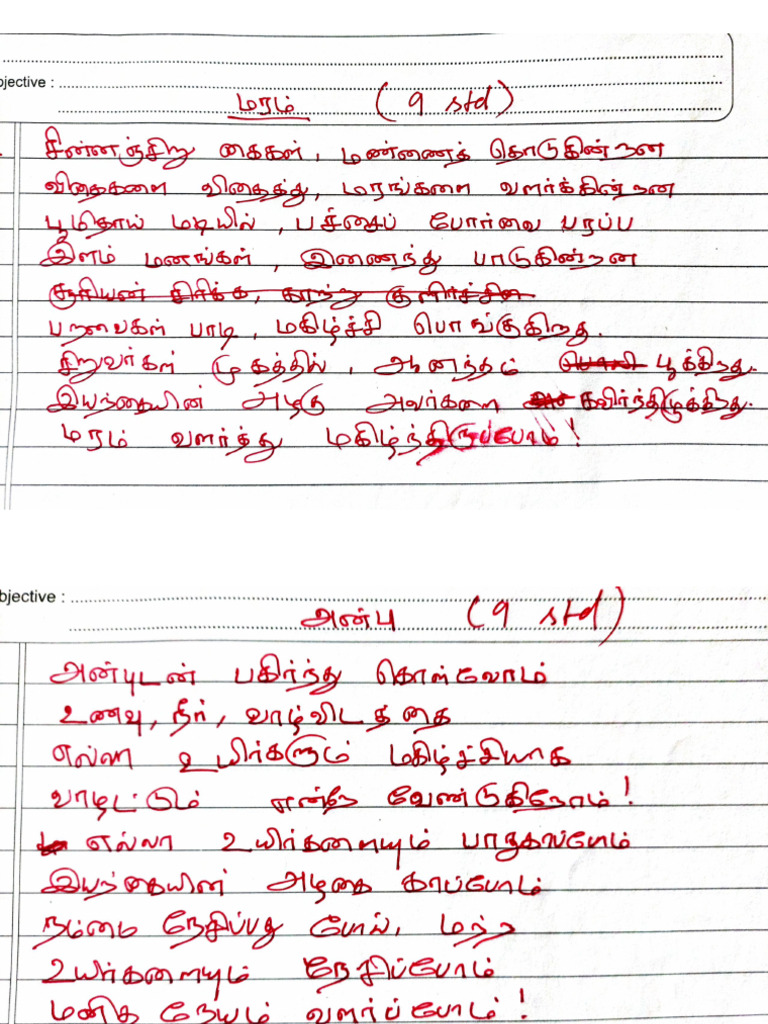 bjective :
மரம் (9 std)
சின்னஞ்சிறு கைகள், மண்ணைத் தொடுகின்றன
விதைகளை விதைத்து, மரங்களை வளர்க்கின்றன
பூமிதாய் மடியில், பச்சைப் போர்வை பரப்ப
இளம் மனங்கள், இணைந்து பாடுகின்றன
சூரியன் சிரிக்க, காற்று குளிர்ச்சியை
பறவைகள் பாடி, மகிழ்ச்சி பொங்குகிறது.
சிறுவர்கள் முகத்தில், ஆனந்தம் பூக்கிறது.
இயற்கையின் அழகு அவர்களை கவிர்ந்திழுக்கிறது.
மரம் வளர்த்து மகிழ்ந்திருப்போம்!
bjective :
அன்பு (9 std)
அன்புடன் பகிர்ந்து கொள்வோம்
உணவு, நீர், வாழ்விடத்தை
எல்லா உயிர்களும் மகிழ்ச்சியாக
வாழட்டும் என்றே வேண்டுகிறோம்!
எல்லா உயிர்களையும் பாதுகாப்போம்
இயற்கையின் அழகை காப்போம்
நம்மை நேசிப்பது போல், மற்ற
உயிர்களையும் நேசிப்போம்
மனித நேயம் வளர்ப்போம்!